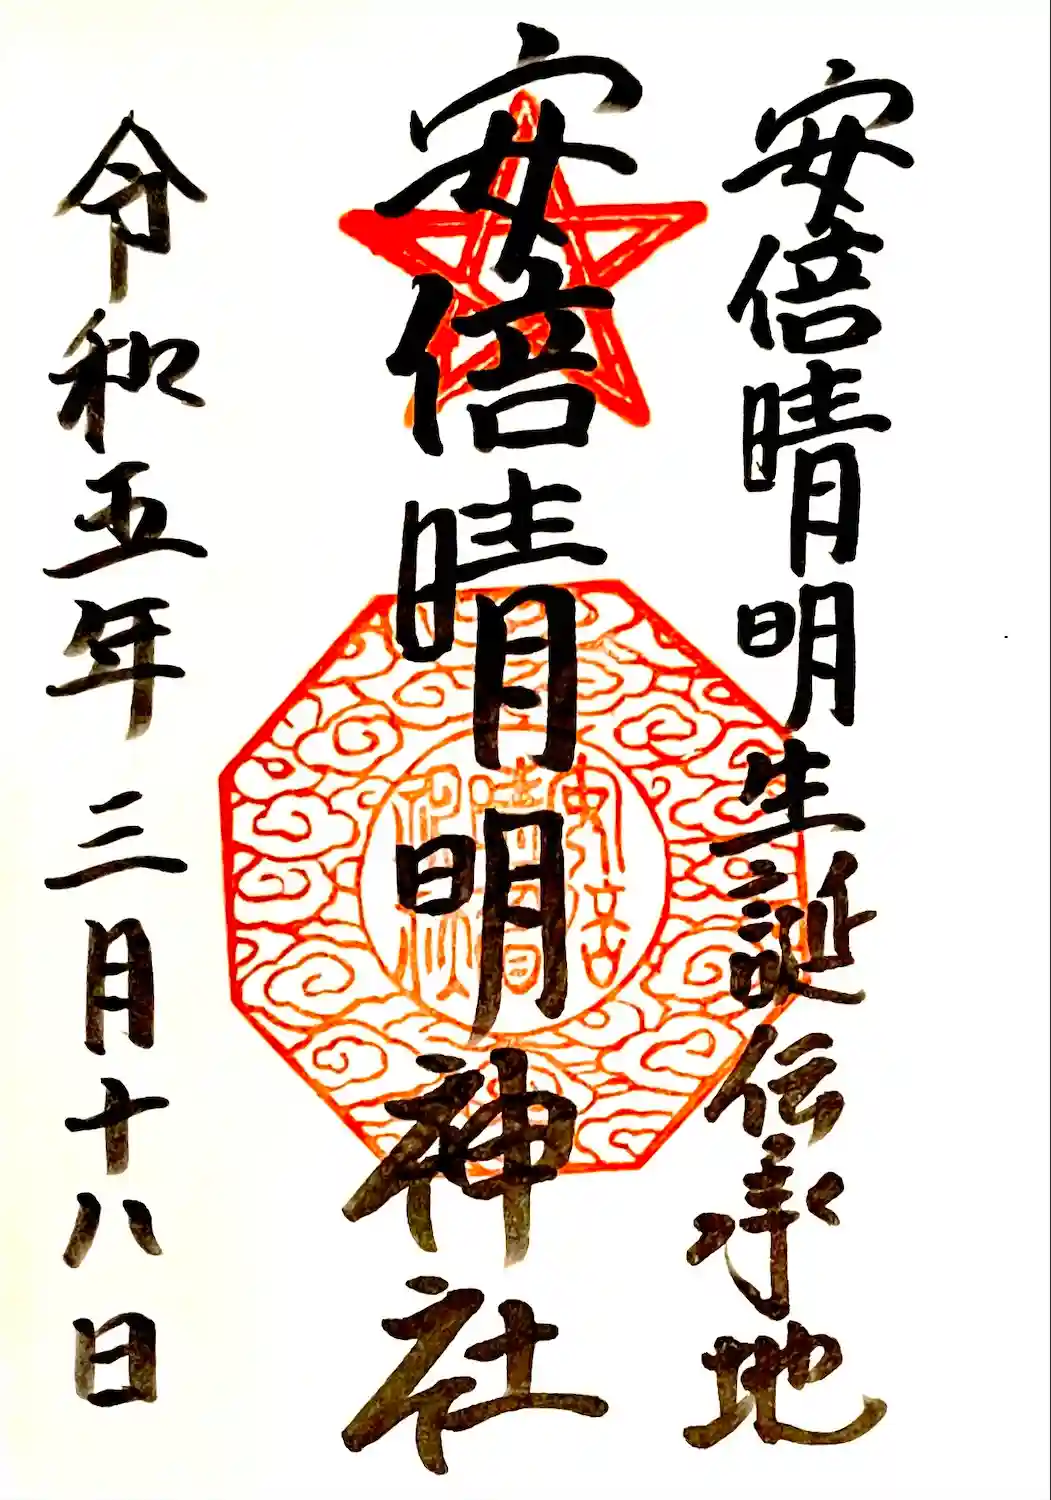 安倍晴明生誕伝承地
安倍晴明神社
令和五年三月十八日